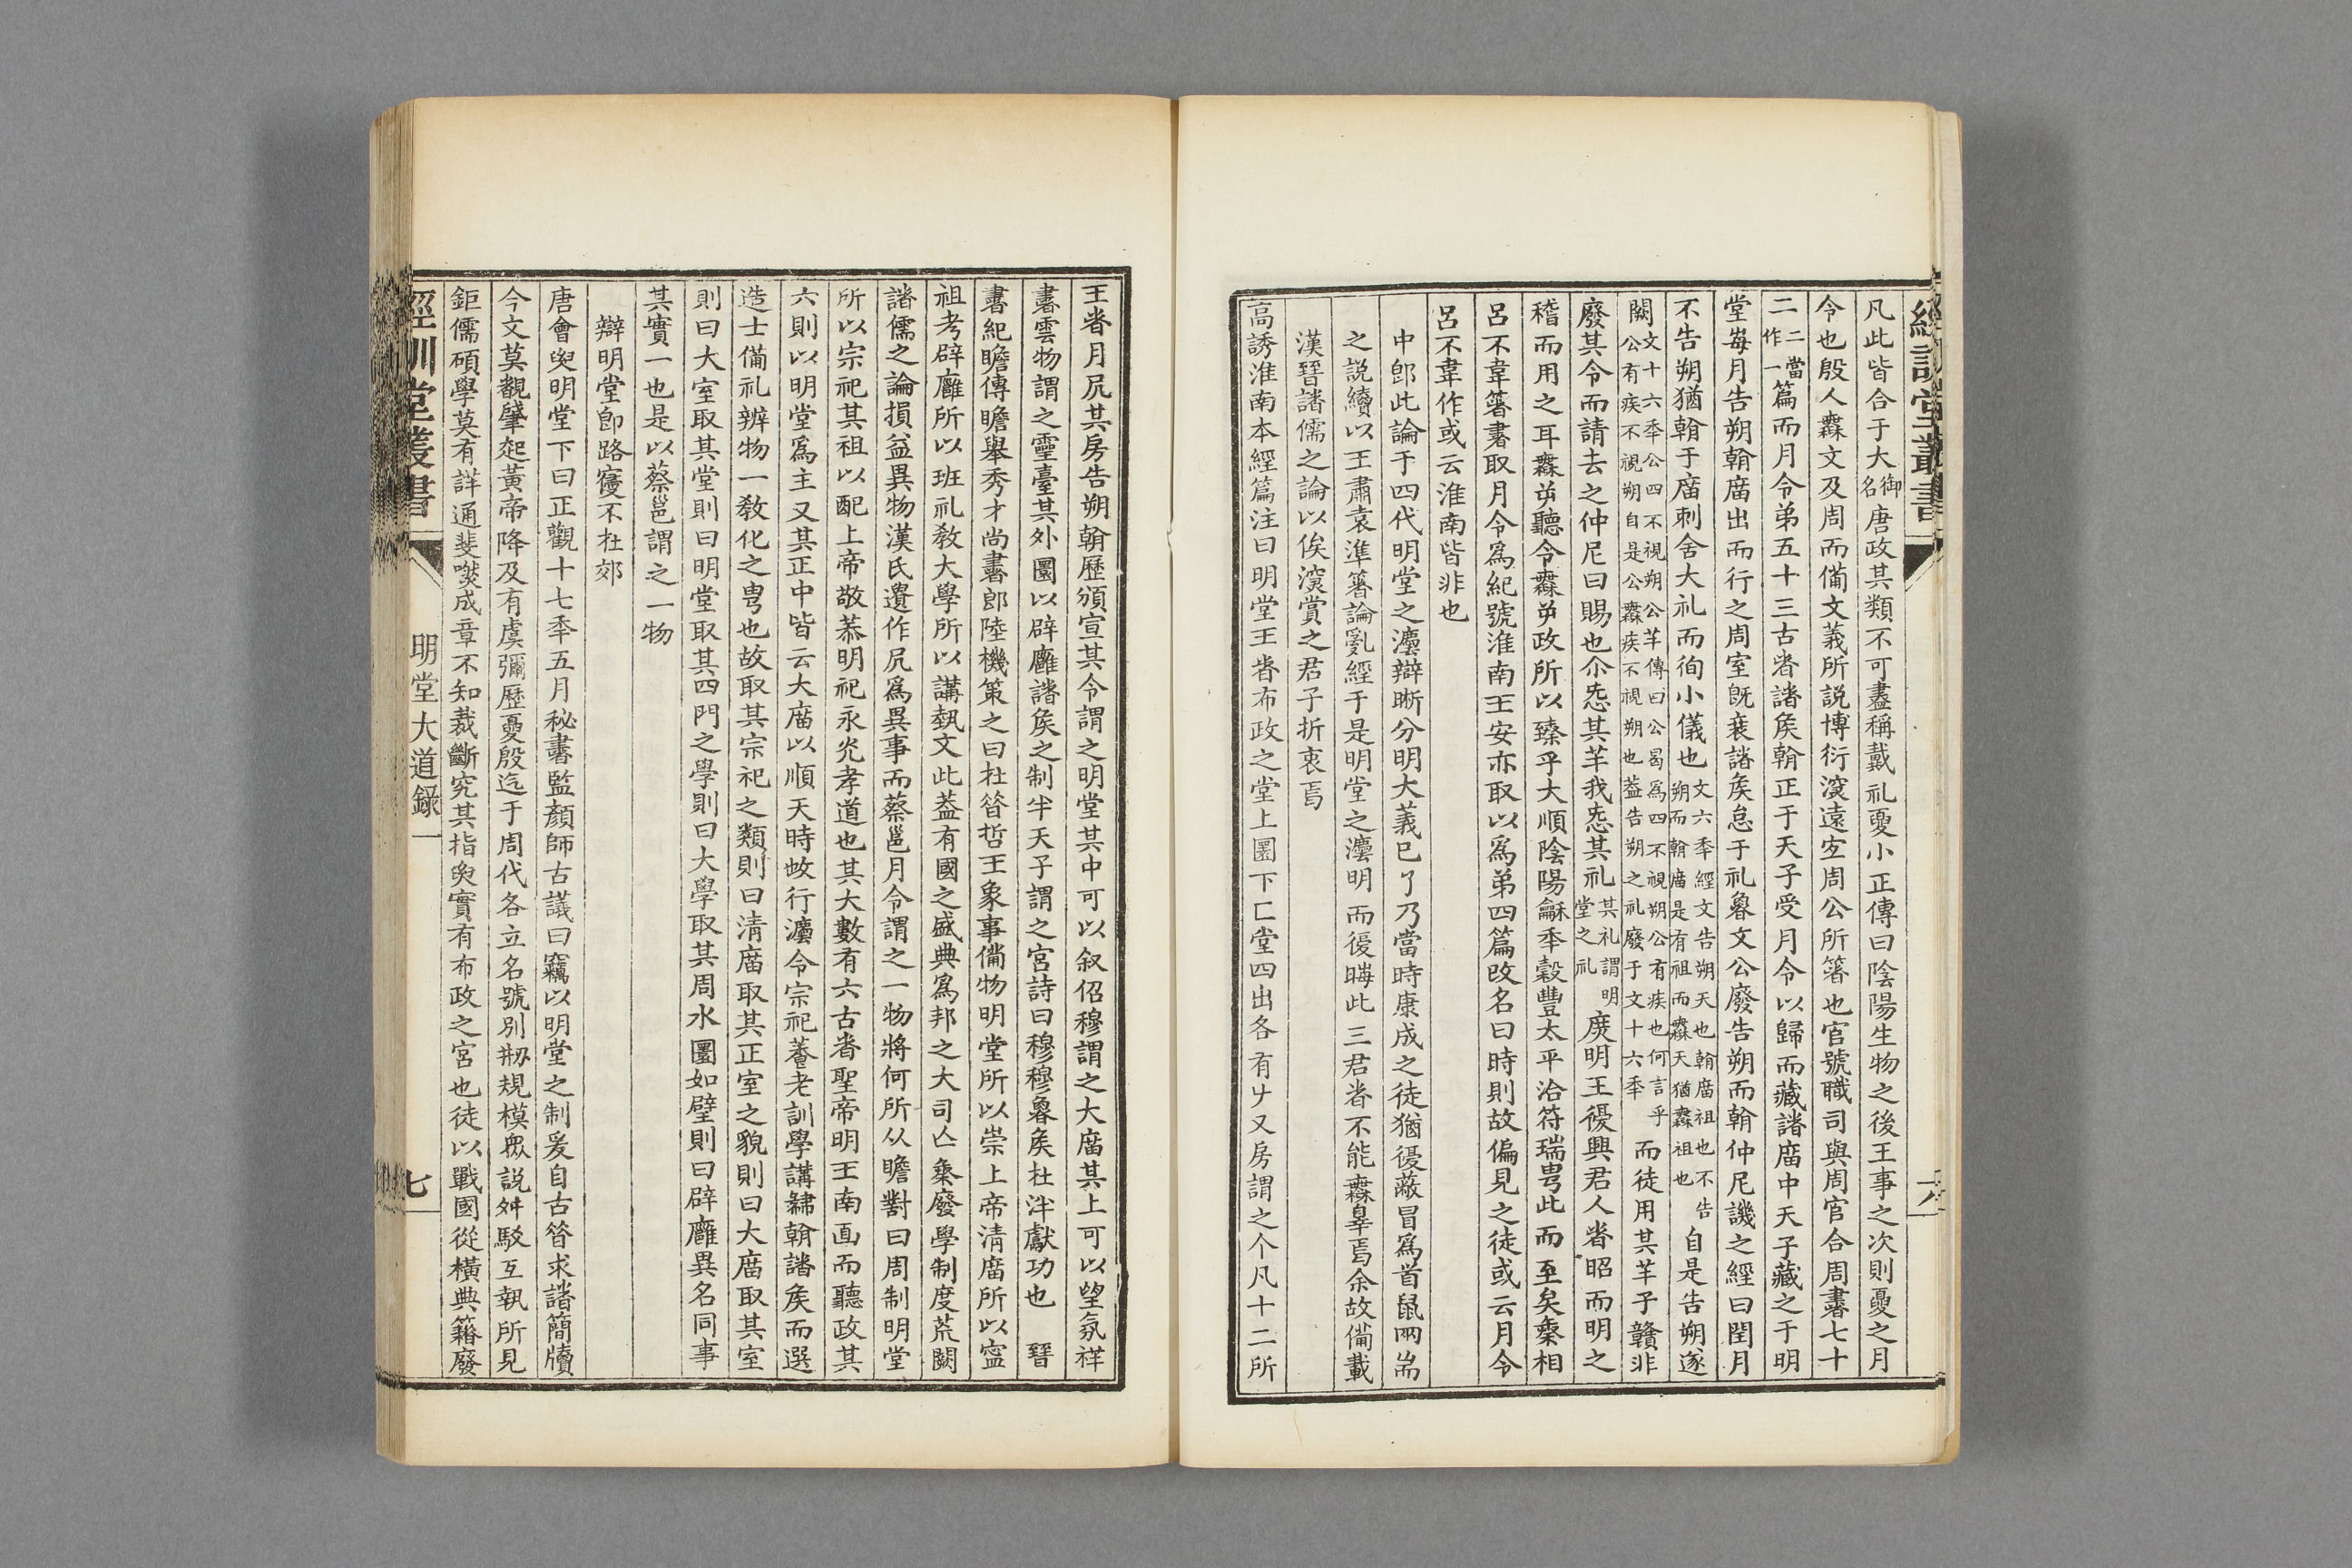 經訓堂叢書
六
凡此皆合于大御名唐政其類不可盡稱戴礼夏小正傳曰陰陽生物之後王事之次則夏之月
令也殷人霖文及周而備文義所說博衍深遠宐周公所箸也官號職司與周官合周書七十
二二當作一篇而月令弟五十三古者諸矦朝正于天子受月令以歸而藏諸廟中天子藏之于明
堂每月告朔朝廟出而行之周室旣衰諸矦怠于礼魯文公廢告朔而朝仲尼譏之經曰閏月
不告朔猶朝于廟刺舍大礼而徇小儀也文六秊經文告朔天也朝廟祖也不告朔而朝廟是有祖而霖天猶霖祖也自是告朔遂
闕文十六秊公四不視朔公羊傳曰公曷爲四不視朔公有疾也何言乎公有疾不視朔自是公霖疾不視朔也葢告朔之礼廢于文十六秊而徒用其羊子贛非
廢其令而請去之仲尼曰賜也尒㤅其羊我㤅其礼其礼謂明堂之礼庻明王復興君人者昭而明之
稽而用之耳霖䓁聽令霖䓁政所以臻乎大順陰陽龢秊穀豐太平洽符瑞㫗此而至矣秦相
呂不韋箸書取月令爲紀號淮南王安亦取以爲弟四篇改名曰時則故偏見之徒或云月令
呂不韋作或云淮南皆非也
中郎此論于四代明堂之灋辯晰分明大義已了乃當時康成之徒猶復蔽冒爲首鼠兩耑
之説續以王肅袁準箸論亂經于是明堂之灋明而復晦此三君者不能霖辠焉余故備載
漢晉諸儒之論以俟深賞之君子折衷焉
高誘淮南本經篇注曰明堂王者布政之堂上圜下匚堂四出各有ナ又房謂之个凡十二所
王者月凥其房告朔朝歷頒宣其令謂之明堂其中可以叙佋穆謂之大廟其上可以望氛祥
書雲物謂之靈臺其外圜以辟廱諸矦之制半天子謂之宮詩曰穆穆魯矦在泮獻功也　晉
書紀瞻傳瞻舉秀才尚書郎陸機策之曰在昝哲王象事備物明堂所以崇上帝清廟所以寍
祖考辟廱所以班礼教大學所以講埶文此葢有國之盛典爲邦之大司亾秦廢學制度荒闕
諸儒之論損益異物漢氏遺作凥爲異事而蔡邕月令謂之一物將何所从瞻對曰周制明堂
所以宗祀其祖以配上帝敬恭明祀永光孝道也其大數有六古者聖帝明王南面而聽政其
六則以明堂爲主又其正中皆云大廟以順天時故行灋令宗祀養老訓學講肄朝諸矦而選
造士備礼辨物一教化之㫗也故取其宗祀之類則曰清廟取其正室之貌則曰大廟取其室
則曰大室取其堂則曰明堂取其四門之學則曰大學取其周水圜如璧則曰辟廱異名同事
其實一也是以蔡邕謂之一物
辯明堂卽路寢不在郊
唐會㬰明堂下曰正觀十七秊五月秘書監顏師古議曰竊以明堂之制爰自古昝求諸簡牘
今文莫覩肇起黃帝降及有虞彌歷夏殷迄于周代各立名號別刱規模衆説舛駁互執所見
鉅儒碩學莫有詳通斐然成章不知裁斷究其指㬰實有布政之宮也徒以戰國從橫典籍廢
經訓堂叢書
明堂大道錄一
七